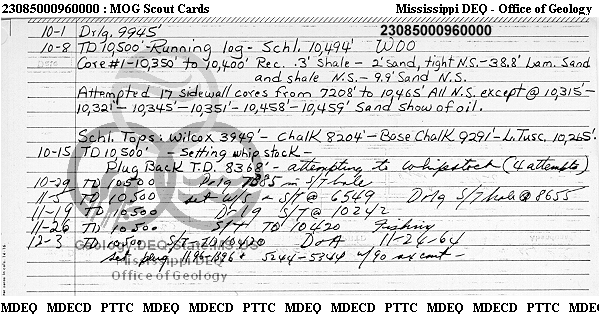 23085000960000 : MOG Scout Cards Mississippi DEQ - Office of Geology
10-1 Drlg. 9945' 23085000960000
10-8 TD 10,500' - Running log - Schl. 10,494' WOO
Core #1 - 10,350' to 10,400' Rec. .3' shale - 2' sand, tight N.S. - 38.8' Lam. Sand
and shale N.S. - 9.9' Sand N.S.
Attempted 17 sidewall cores from 7208' to 10,465' All N.S. except @ 10,315' -
10,321' - 10,345' - 10,351' - 10,458' - 10,459' Sand show of oil.
Schl. Tops: Wilcox 3949' - Chalk 8204' - Base Chalk 9291' - L. Tusc. 10,265'.
10-15 TD 10,500' - Setting whipstock -
Plug Back T.D. 8368' - attempting to whipstock (4 attempts)
10-29 TD 10,500 Drlg 7285 in S/T hole
11-5 TD 10,500 set W/S - S/T @ 6549 Drlg S/T hole @ 8655
11-19 TD 10,500 Drlg S/T @ 10242
11-26 TD 10,500 S/TH TD 10420 Fishing
12-3 TD 10,500 S/T - TD 10420 DoA 11-24-64
set plug 1196-1396 + 5244-5344 w/90 sx cmt -
Geology.DEQ.State.MS.US
Mississippi DEQ
Office of Geology
MDEQ MDECD PTTC MDEQ MDECD PTTC MDEQ MDECD PTTC MDEQ MDECD PTTC MDEQ MDECD